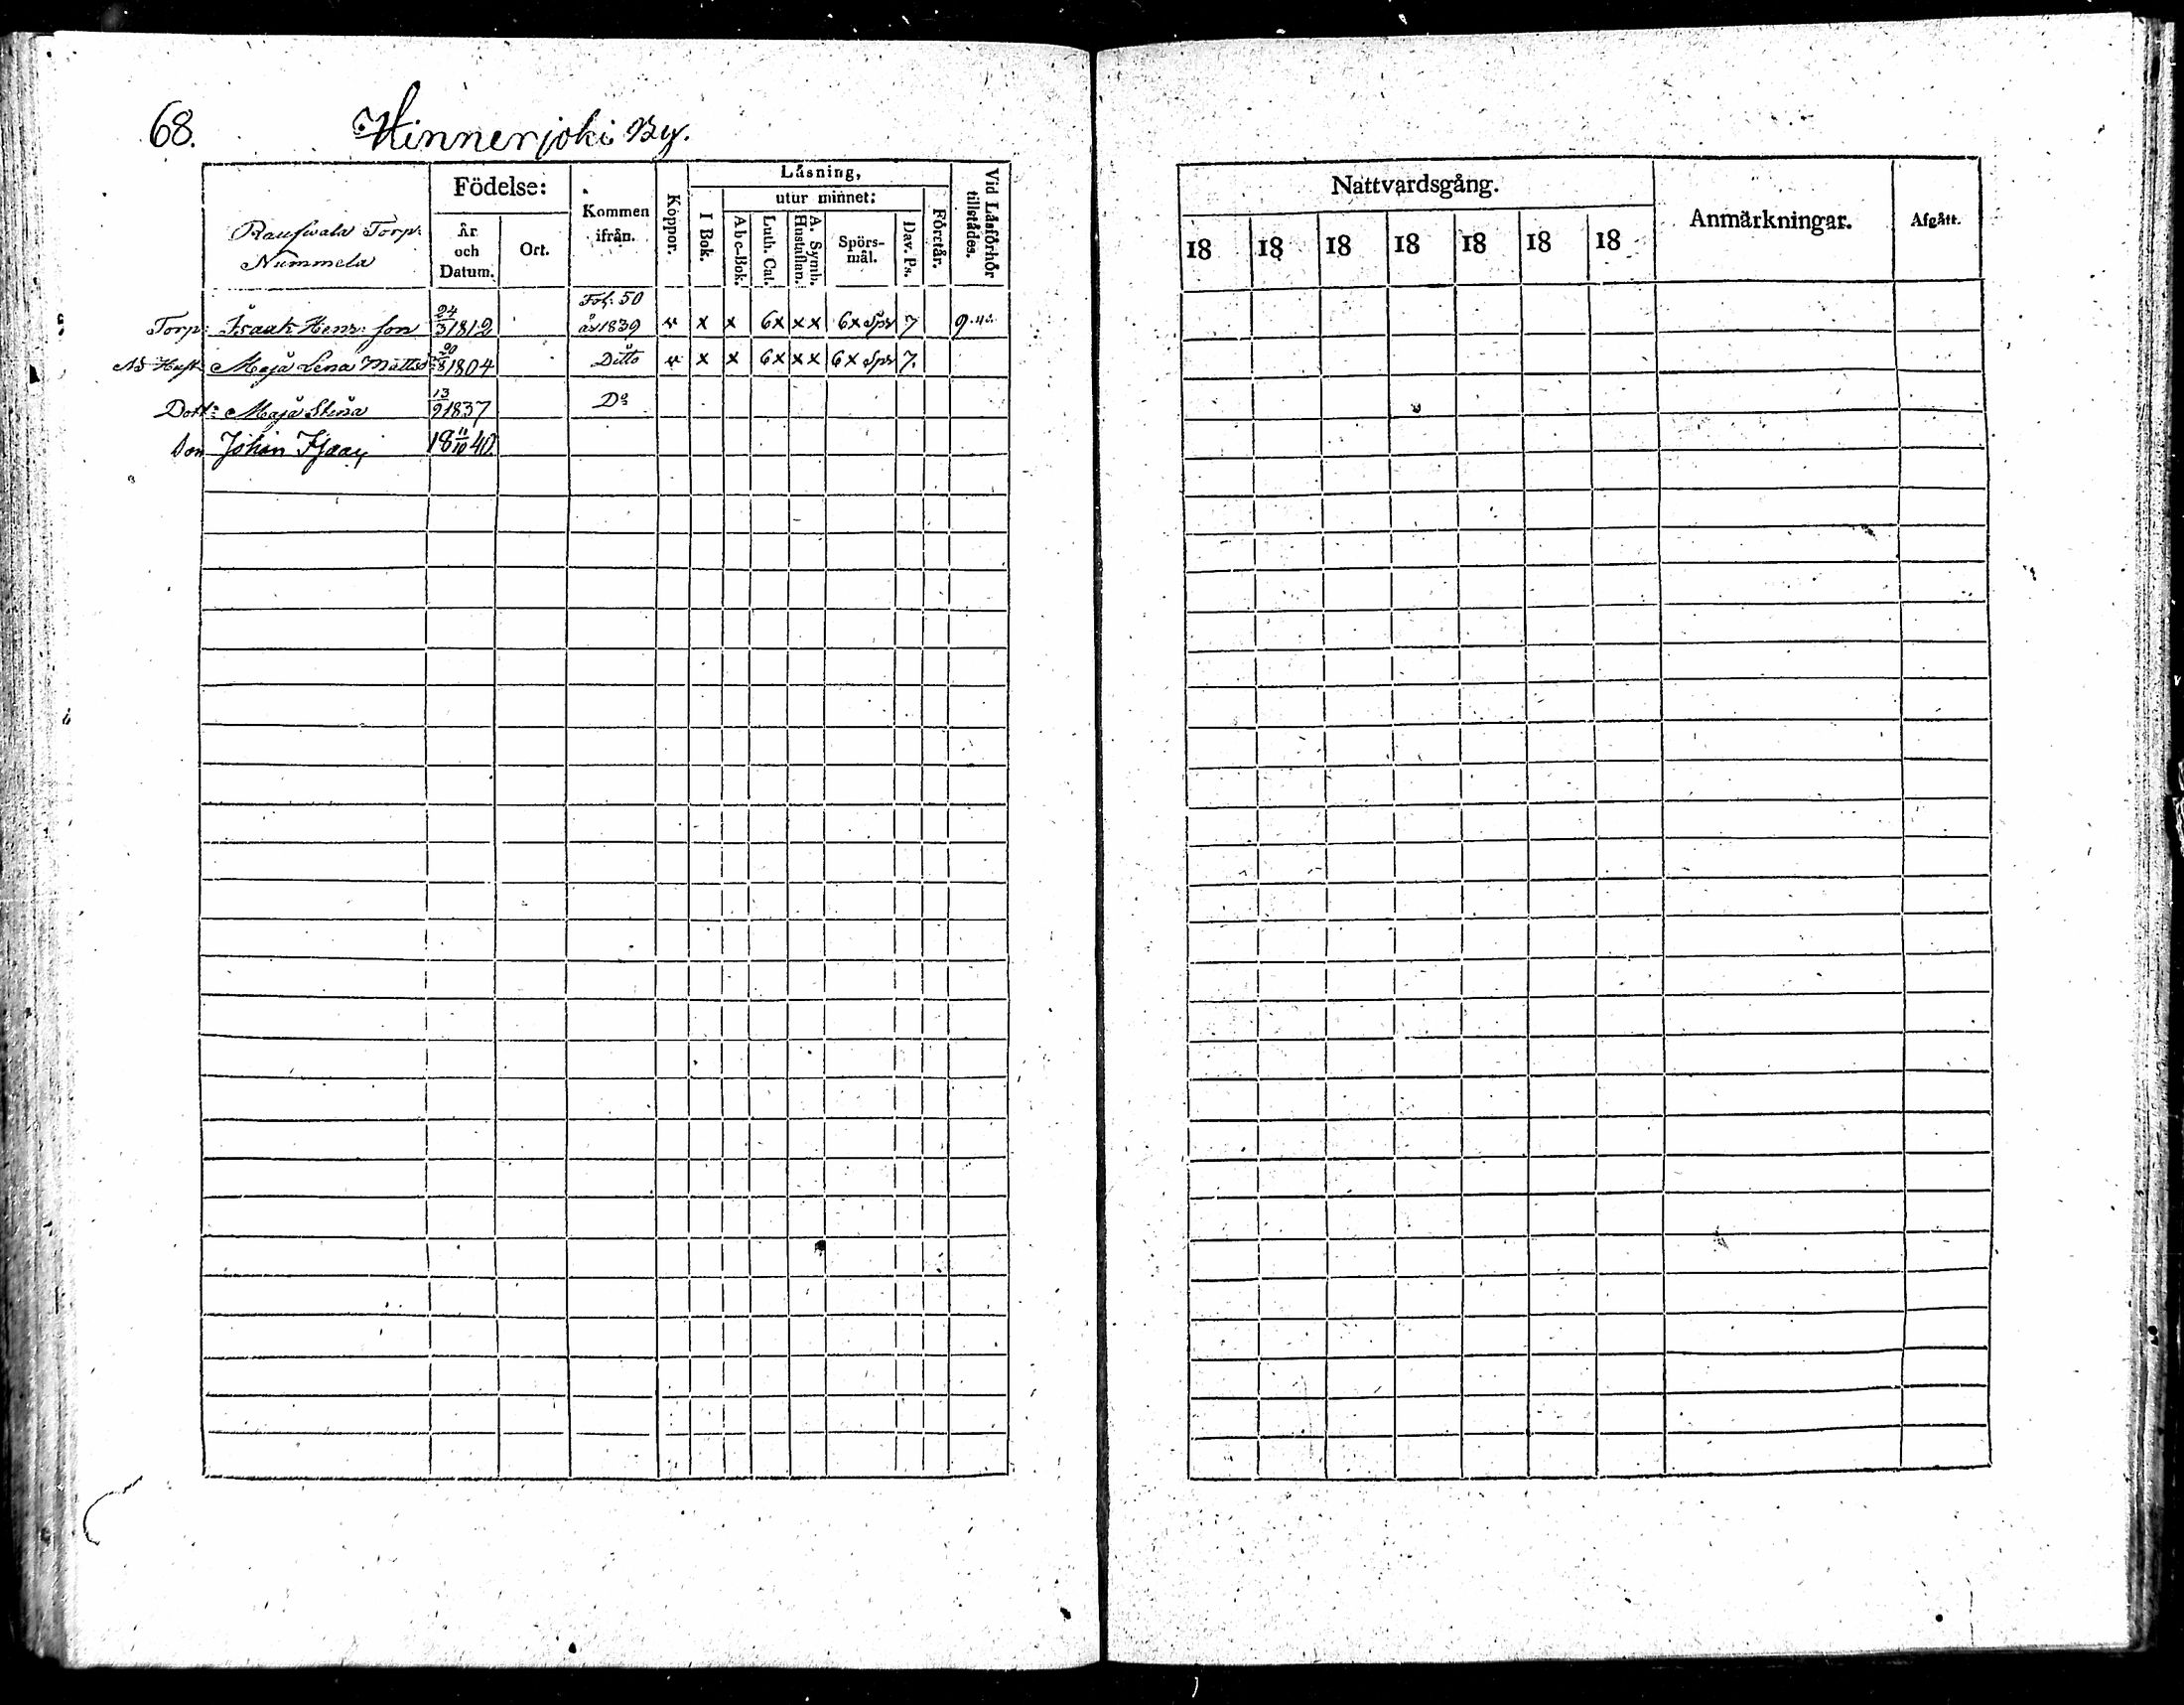 68. Hinnerjoki By.
Födelse: Kommen ifrån. Koppor. Läsning, Vid Läsförhör tillstädes.
utur minnet:
Torp: År och Datum. Ort. I Bok. Abc-Bok. Luth. Cat. A. Symb. Hustaflan. Spörs-mål. Dav. Ps. Förstår.
Nummela
Fol. 50
Torp: Isaak Henr: son 24/3 1812 år 1839 v x x 6x xx 6x Spr 7
Maja Lena Mattsd 1804 Ditto v x x 6x xx 6x Spr 7.
Dott: Maja Stina 13/9 1837 Do
Son Johan Isaac 18 11/10 40.
Nattvardsgång. Anmärkningar. Afgått.
18 18 18 18 18 18 18